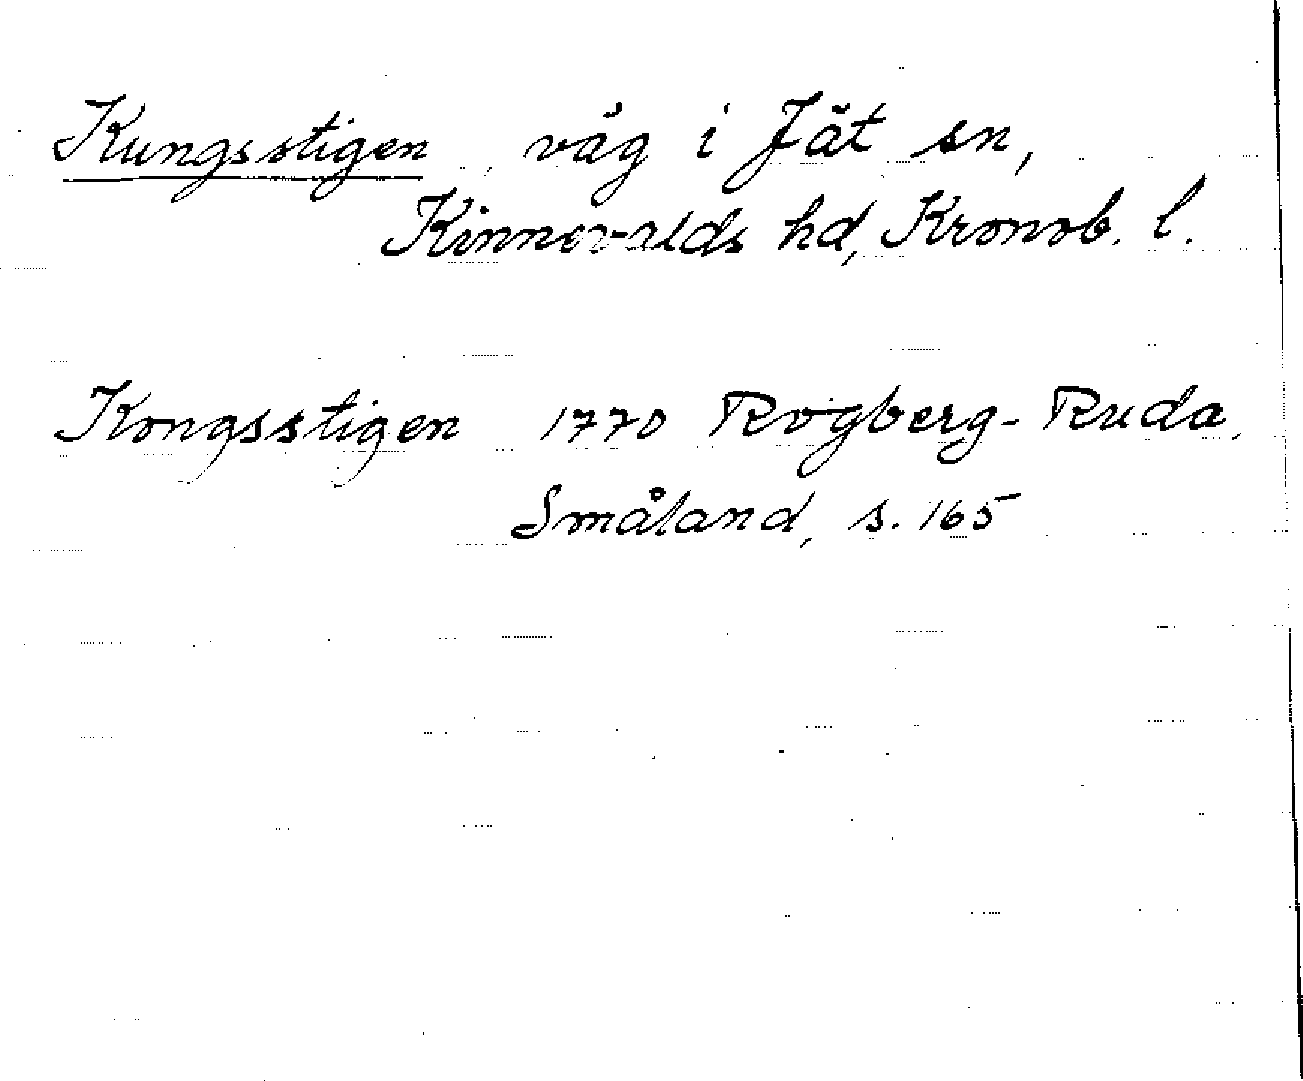 Kungsstigen, väg i Jät sn,
Kinnevalds hd, Kronob. l.
Kongsstigen 1770 Rogberg-Ruda,
Småland, s. 165